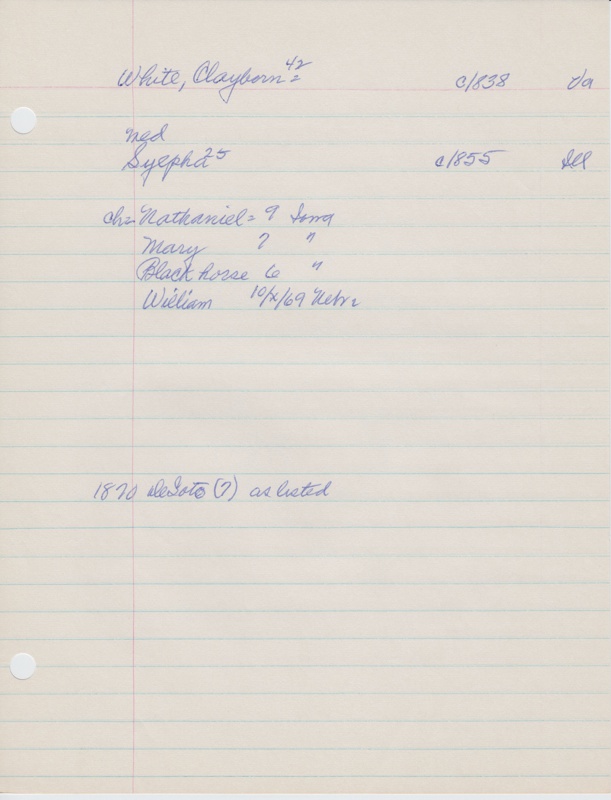 White, Clayborn 42 = c/838 Va
med
Syepha 25 c/855 Ill
ch= Nathaniel = 9 Iowa
Mary 7 "
Black horse 6 "
William 10/x/69 Nebr
1870 DeSoto (7) as listed